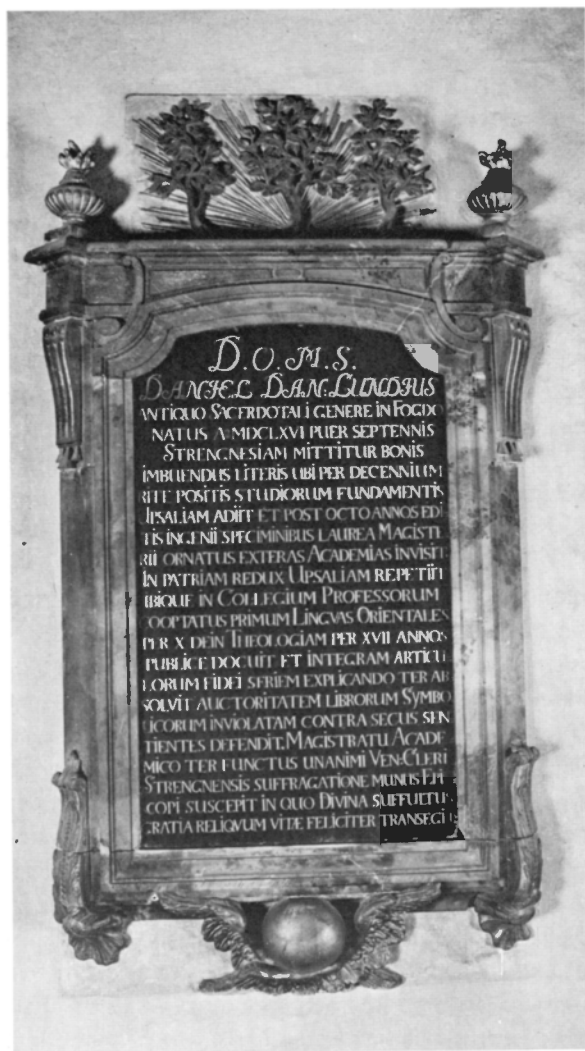 D.O.M.S.
DANIEL DAN: LUNDIUS
ANTIQUO SACERDOTALI GENERE IN FOGDO
NATUS A MDCLXVI PUER SEPTENNIS
STRENGNESIAM MITTITUR BONIS
IMBUENDUS LITERIS UBI PER DECENNIUM
RITE POSITIS STUDIORUM FUNDAMENTIS
UPSALIAM ADIIT ET POST OCTO ANNOS EDI
TIS INGENII SPECIMINIBUS LAUREA MAGISTE
RII ORNATUS EXTERAS ACADEMIAS INVISIT
IN PATRIAM REDUX UPSALIAM REPETIIT
IBIQUE IN COLLEGIUM PROFESSORUM
COOPTATUS PRIMUM LINGVAS ORIENTALES
PER X DEIN THEOLOGIAM PER XVII ANNOS
PUBLICE DOCUIT ET INTEGRAM ARTICU
LORUM FIDEI SERIEM EXPLICANDO TER AB
SOLVIT AUCTORITATEM LIBRORUM SYMBO
LICORUM INVIOLATAM CONTRA SECUS SEN
TIENTES DEFENDIT. MAGISTRATU ACADE
MICO TER FUNCTUS UNANIMI VEN: CLERI
STRENGNENSIS SUFFRAGATIONE MUNUS EPI
COPI SUSCEPIT IN QUO DIVINA SUFFULTUS
GRATIA RELIQVUM VITÆ FELICITER TRANSEGIT